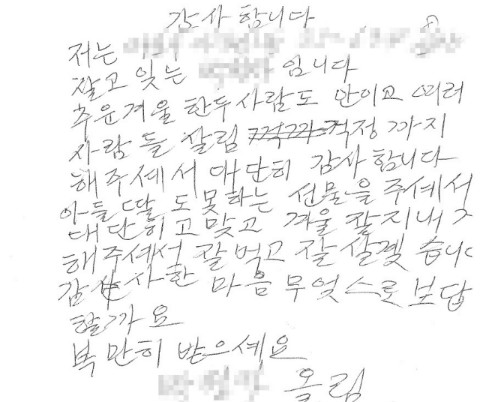 감사합니다
저는
잘고 잊는 임니다
추운겨울 한두사람도 만이고 여러
사람들 살림 걱정까지
해주셰서 대단히 감사합니다
아들딸도못하는 선물을 주셰서
대단히고맞고 겨울잘지내
해주셰서 잘먹고 잘살겠습니
감사한 마음무엇스로보답
할까요
복만히 받으셰요
올림